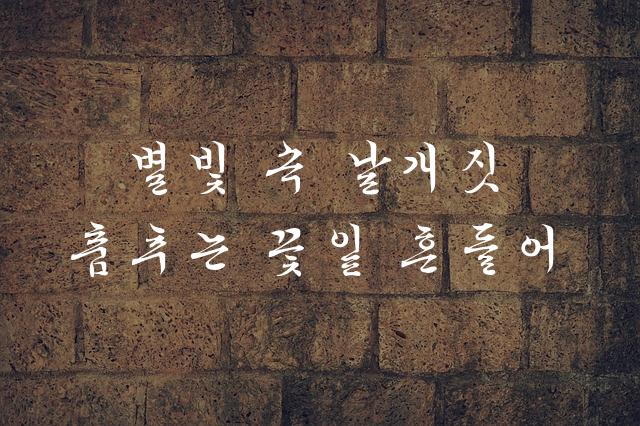 별빛 속 날개짓
춤추는 꽃잎 흔들어